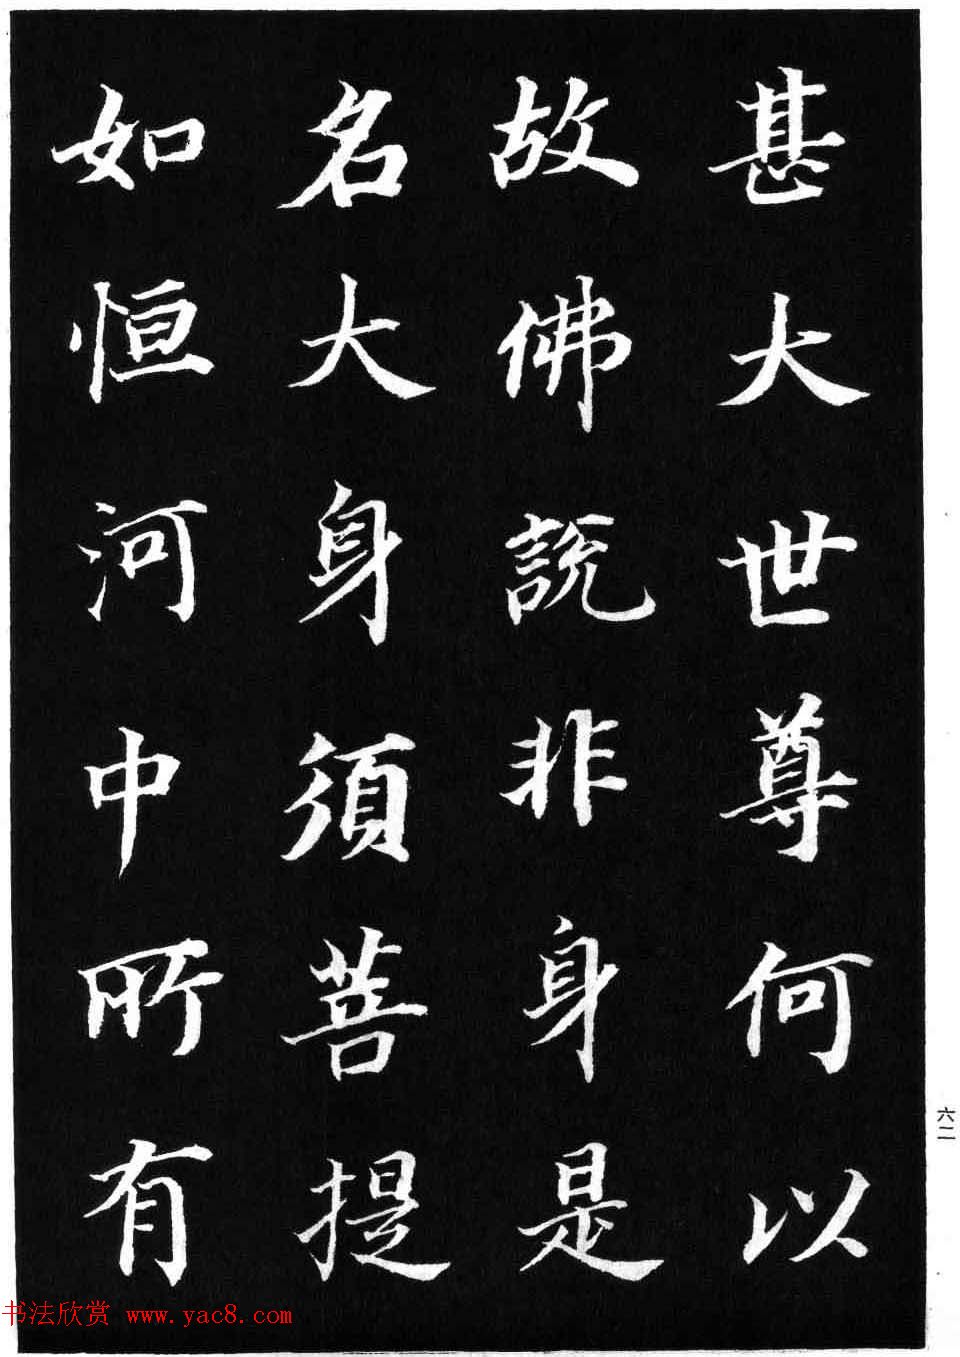 甚大世尊何以
故佛說非身是
名大身須菩提
如恒河中所有
六二
书法欣赏 www.yac8.com